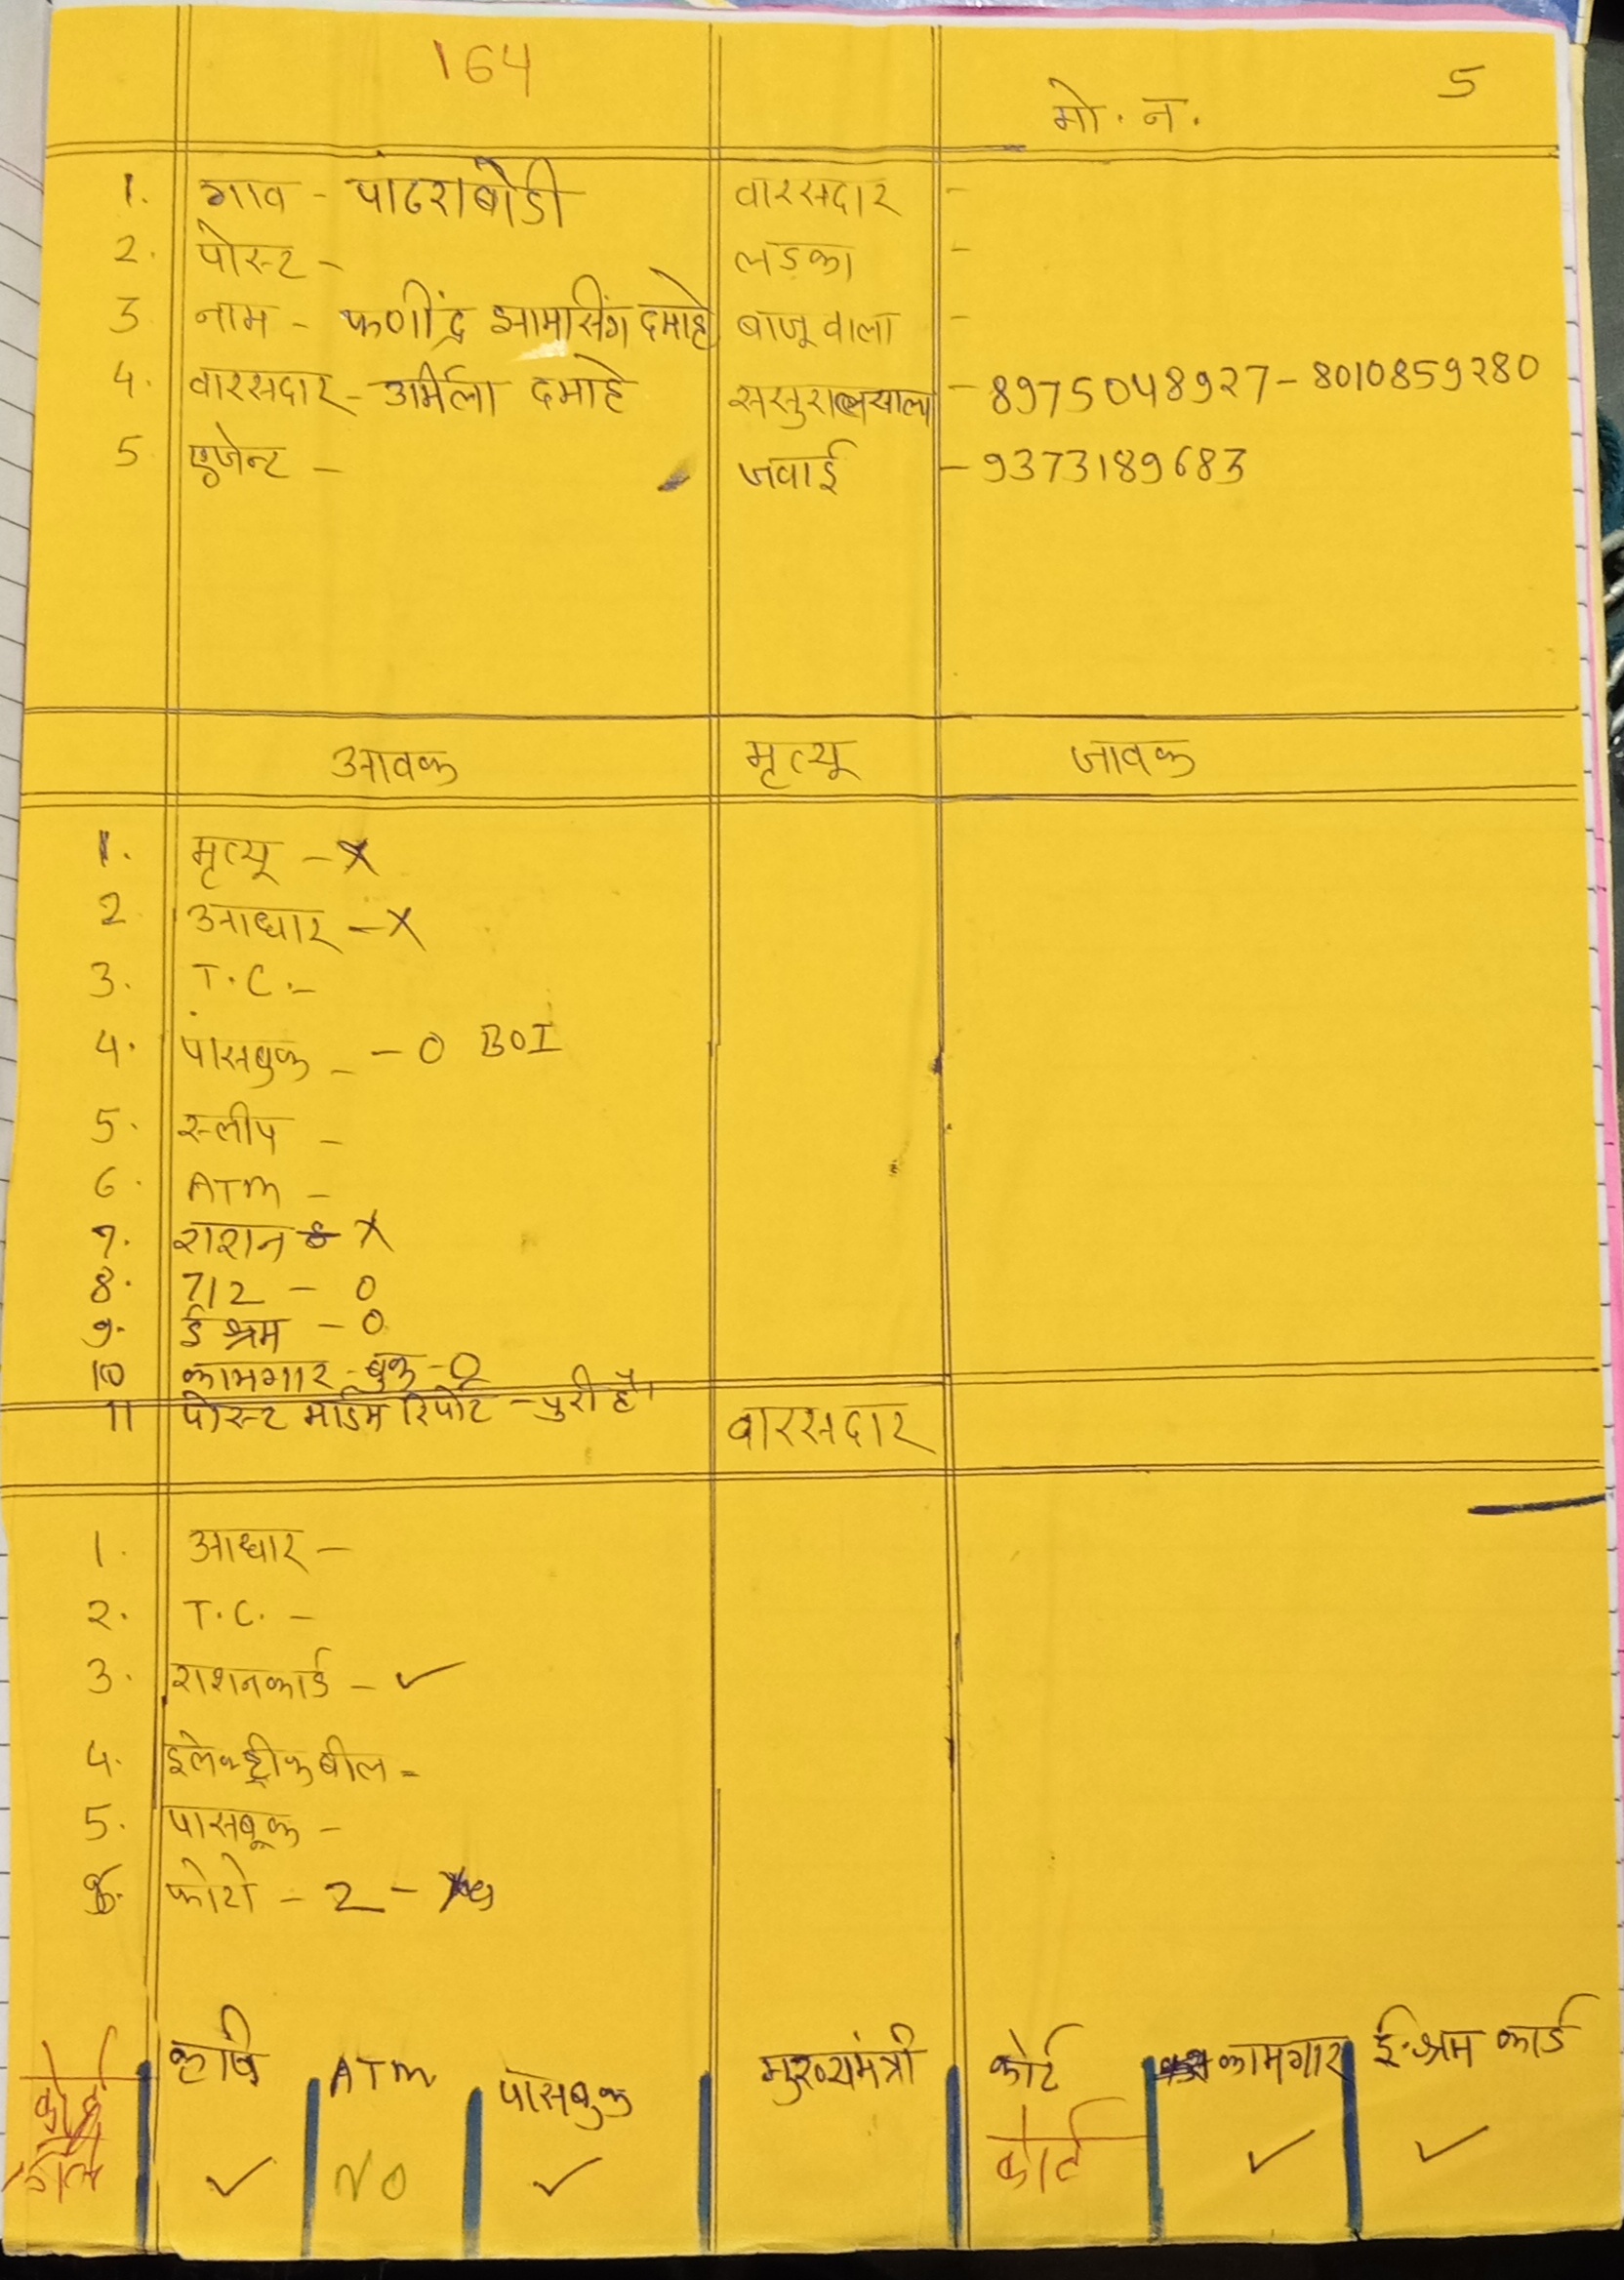 164
5
मो. न.
1. गाव - पांढराबोडी वारसदार -
2. पोस्ट - लडका -
3 नाम - फणींद्र झामसिंग दमाहे बाजूवाला -
4. वारसदार - उर्मिला दमाहे ससुरालसाला - 8975048927 - 8010859280
5 एजेन्ट - जवाई - 9373189683
आवक मृत्यू जावक
1. मृत्यू - X
2 आधार - X
3. T.C. -
4. पासबुक - - 0 BOI
5. स्लीप -
6. ATM -
7. राशन X
8. 712 - 0
9. ई श्रम - 0
10 कामगार - बुक - 0
11 पोस्ट मार्डम रिपोर्ट - पुरी है।
वारसदार
1. आधार -
2. T.C. -
3. राशनकार्ड - ✓
4. इलेक्ट्रीक बील =
5. पासबूक -
6. फोटो - 2 -
कृषि ATM पासबुक मुख्यमंत्री कोर्ट कामगार ई-श्रम कार्ड
✓ NO ✓ कोर्ट ✓ ✓